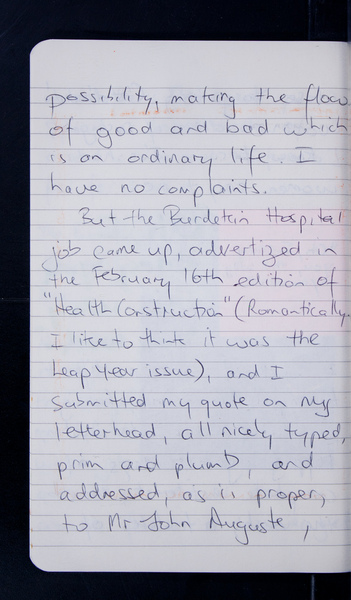 possibility, making the flow
of good and bad which
is an ordinary life. I
have no complaints.
But the Burdekin Hospital
job came up, advertized in
the February 16th edition of
"Health Construction" (Romantically,
I like to think it was the
leap year issue), and I
submitted my quote on my
letterhead, all nicely typed,
prim and plumb, and
addressed, as is proper,
to Mr John Auguste,